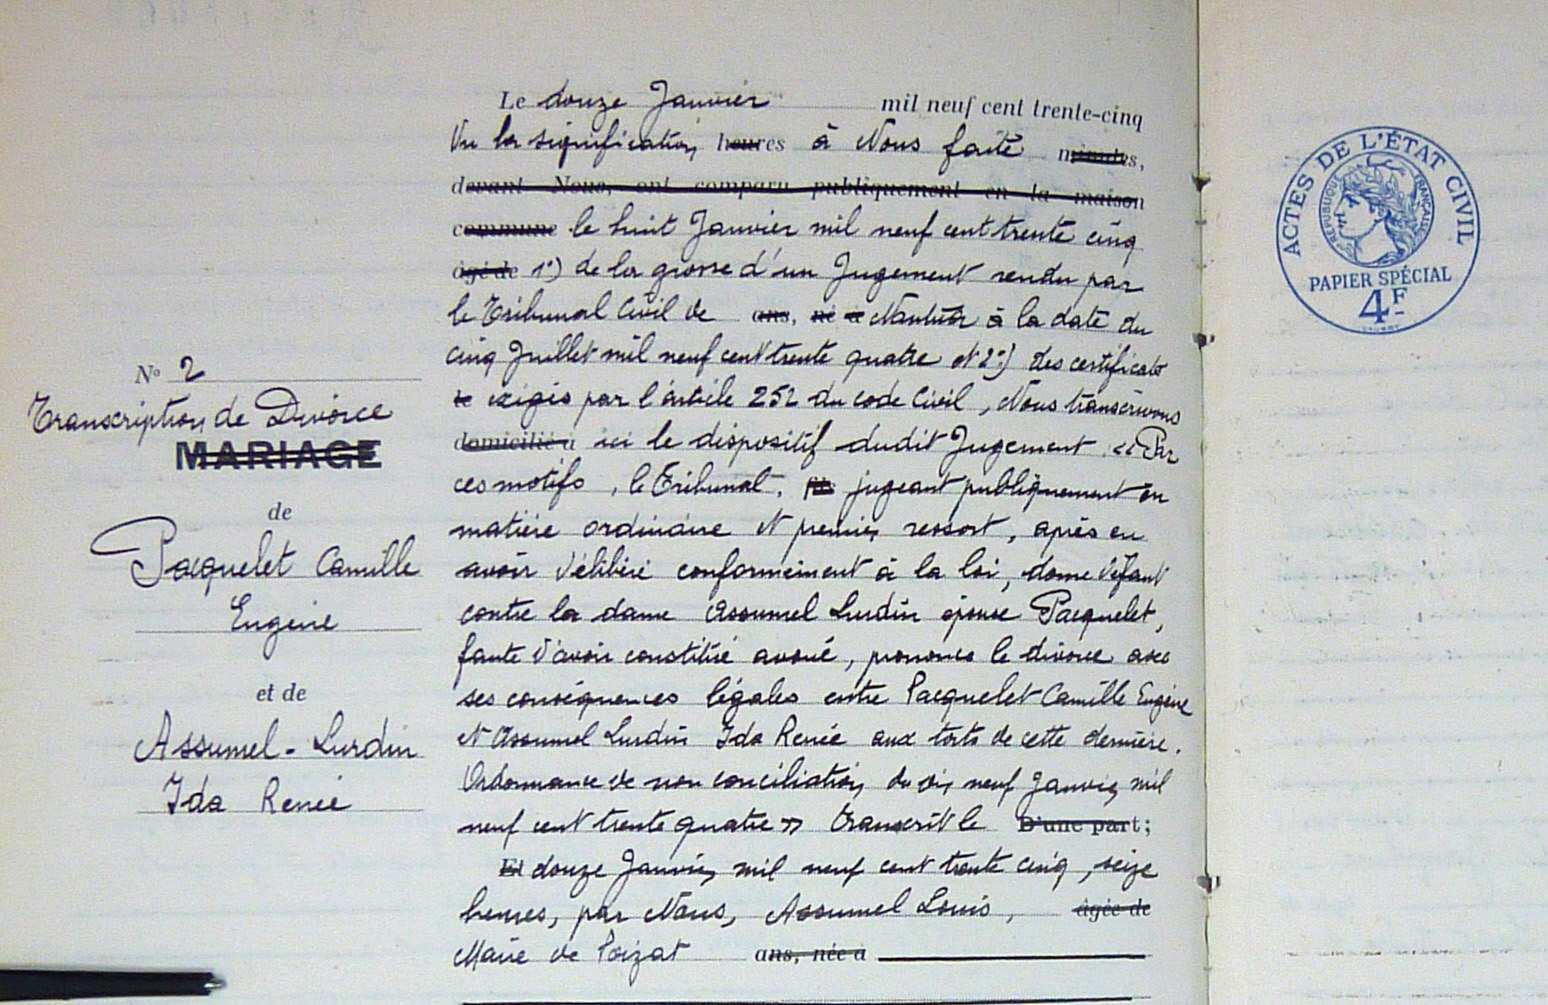 Nº 2
Transcription de Divorce
MARIAGE
de
Pacquelet Camille
Eugène
et de
Assumel-Lurdin
Ida Renée
Le douze Janvier mil neuf cent trente-cinq
Vu la signification heures à Nous faite minutes,
devant Nous, ont comparu publiquement en la maison
commune le huit Janvier mil neuf cent trente cinq
âgé de 1°) de la grosse d'un Jugement rendu par
le Tribunal Civil de ans, né à Nantua à la date du
cinq Juillet mil neuf cent trente quatre et 2°) des certificats
exigés par l'article 252 du code Civil, Nous transcrivons
domicilié à ici le dispositif dudit Jugement. « Par
ces motifs, le Tribunal, fils jugeant publiquement en
matière ordinaire et premier ressort, après en
avoir délibéré conformément à la loi, donne défaut
contre la dame Assumel Lurdin épouse Pacquelet,
faute d'avoir constitué avoué, prononce le divorce avec
ses conséquences légales entre Pacquelet Camille Eugène
et Assumel Lurdin Ida Renée aux torts de cette dernière.
Ordonnance de non conciliation du dix neuf Janvier mil
neuf cent trente quatre » transcrit le D'une part;
Et douze Janvier mil neuf cent trente cinq, seize
heures, par Nous, Assumel Louis, âgée de
Maire de Poizat ans, née à
ACTES DE L'ÉTAT CIVIL
RÉPUBLIQUE FRANÇAISE
PAPIER SPÉCIAL
4F